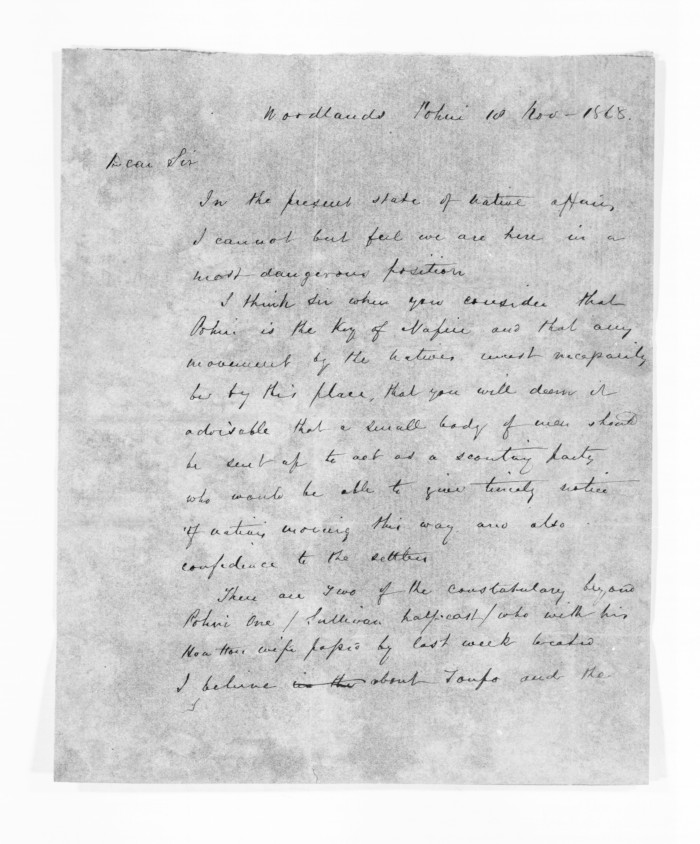 Woodlands Pohui 18 Nov - 1868.
Dear Sir
In the present state of native affairs,
I cannot but feel we are here in a
most dangerous position
I think Sir when you consider that
Pohui is the Key of Napier and that any
movement by the natives must necessarily
be by this place, that you will deem it
advisable that a small body of men should
be sent up to act as a scouting party
who would be able to give timely notice
of natives moving this way and also
confidence to the settlers
There are two of the constabulary beyond
Pohui One / Sullivan halfcast / who with his
Hau Hau wife passed by last week located
I believe in the about Taupo and the